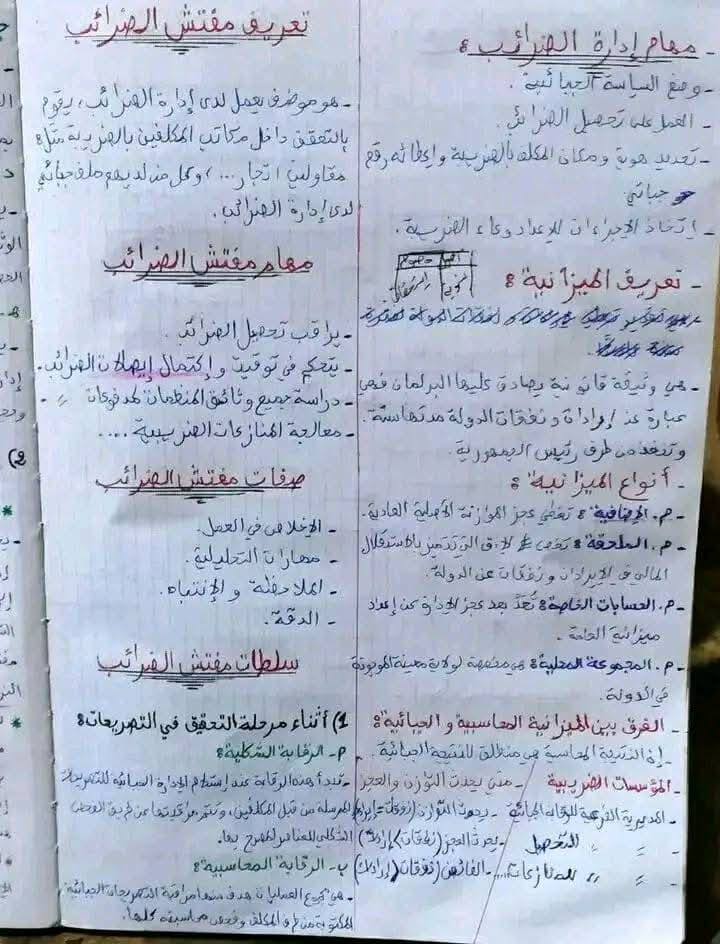 - مهام إدارة الضرائب:
- وضع السياسة الجبائية.
- العمل على تحصيل الضرائب.
- تحديد هوية ومكان المكلف بالضريبة وإعطائه رقم
جبائي
- إتخاذ الإجراءات للإعداد وعاء الضريبة.
- تعريف الميزانية:
- هي وثيقة قانونية يصادق عليها البرلمان فهي
عبارة عن إيرادات ونفقات الدولة مدتها سنة.
وتنفذ من طرف رئيس الجمهورية.
- أنواع الميزانية:
- م. الإضافية: تغطي عجز الموازنة الأصلية العادية.
- م. الملحقة: تخص التي تتميز بالاستقلال
المالي في الإيرادات ونفقات عن الدولة.
- م. الحسابات الخاصة: تعد بعد عجز الإدارة عن إعداد
ميزانية العامة.
- م. المجموعة المحلية: هي مخصصة لولاية معينة الموجودة
في الدولة.
- الفرق بين الميزانية المحاسبية و الجبائية:
- إن النتيجة المحاسبة هي منطلق للنتيجة الجبائية.
المؤسسات الضريبية
- المديرية الفرعية للرقابة الجبائية
- " " للتحصيل
- " " للمنازعات...
- متى يحدث التوازن والعجز
- يحدث التوازن (نفقات = إيراد)
- يحدث العجز (نفقات > إيرادات)
- الفائض (نفقات < إيرادات)
تعريف مفتش الضرائب
- هو موظف يعمل لدى إدارة الضرائب، يقوم
بالتحقق داخل مكاتب المكلفين بالضريبة مثل:
مقاولين، اتجار...، وكل من لديهم ملف جبائي
لدى إدارة الضرائب.
مهام مفتش الضرائب
- يراقب تحصيل الضرائب.
- يتحكم في توقيت و إكتمال إيصالات الضرائب.
- دراسة جميع وثائق المنظمات لمدفوعات " .
- معالجة المنازعات الضريبية ....
صفات مفتش الضرائب
- الإخلاص في العمل.
- مهارات التحليلية.
- الملاحظة و الإنتباه.
- الدقة.
سلطات مفتش الضرائب
1) أثناء مرحلة التحقيق في التصريحات:
أ- الرقابة الشكلية:
- تبدأ هذه الرقابة عند إستلام الإدارة الجبائية للتصريحات
المرسلة من قبل المكلفين، وتتم مراقبتها عن طريق الفحص
الشكلي للعناصر المصرح بها.
ب- الرقابة المحاسبية:
- هي جموع العمليات هدف منها مراقبة التصريحات الجبائية
المكتوبة من طرف المكلف وفحص محاسبته كلها.